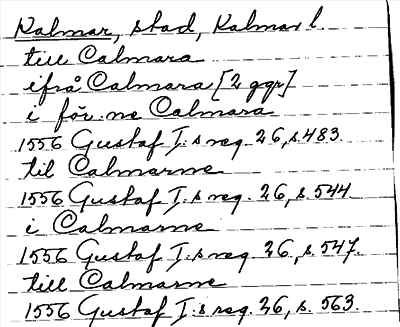 Kalmar, stad, Kalmar l.
till Calmara
ifrå Calmara [2 ggr]
i för:ne Calmara
1556 Gustaf I:s reg. 26, s. 483.
til Calmarne
1556 Gustaf I:s reg. 26, s. 544.
i Calmarne
1556 Gustaf I:s reg. 26, s. 547.
till Calmarne
1556 Gustaf I:s reg. 26, s. 563.